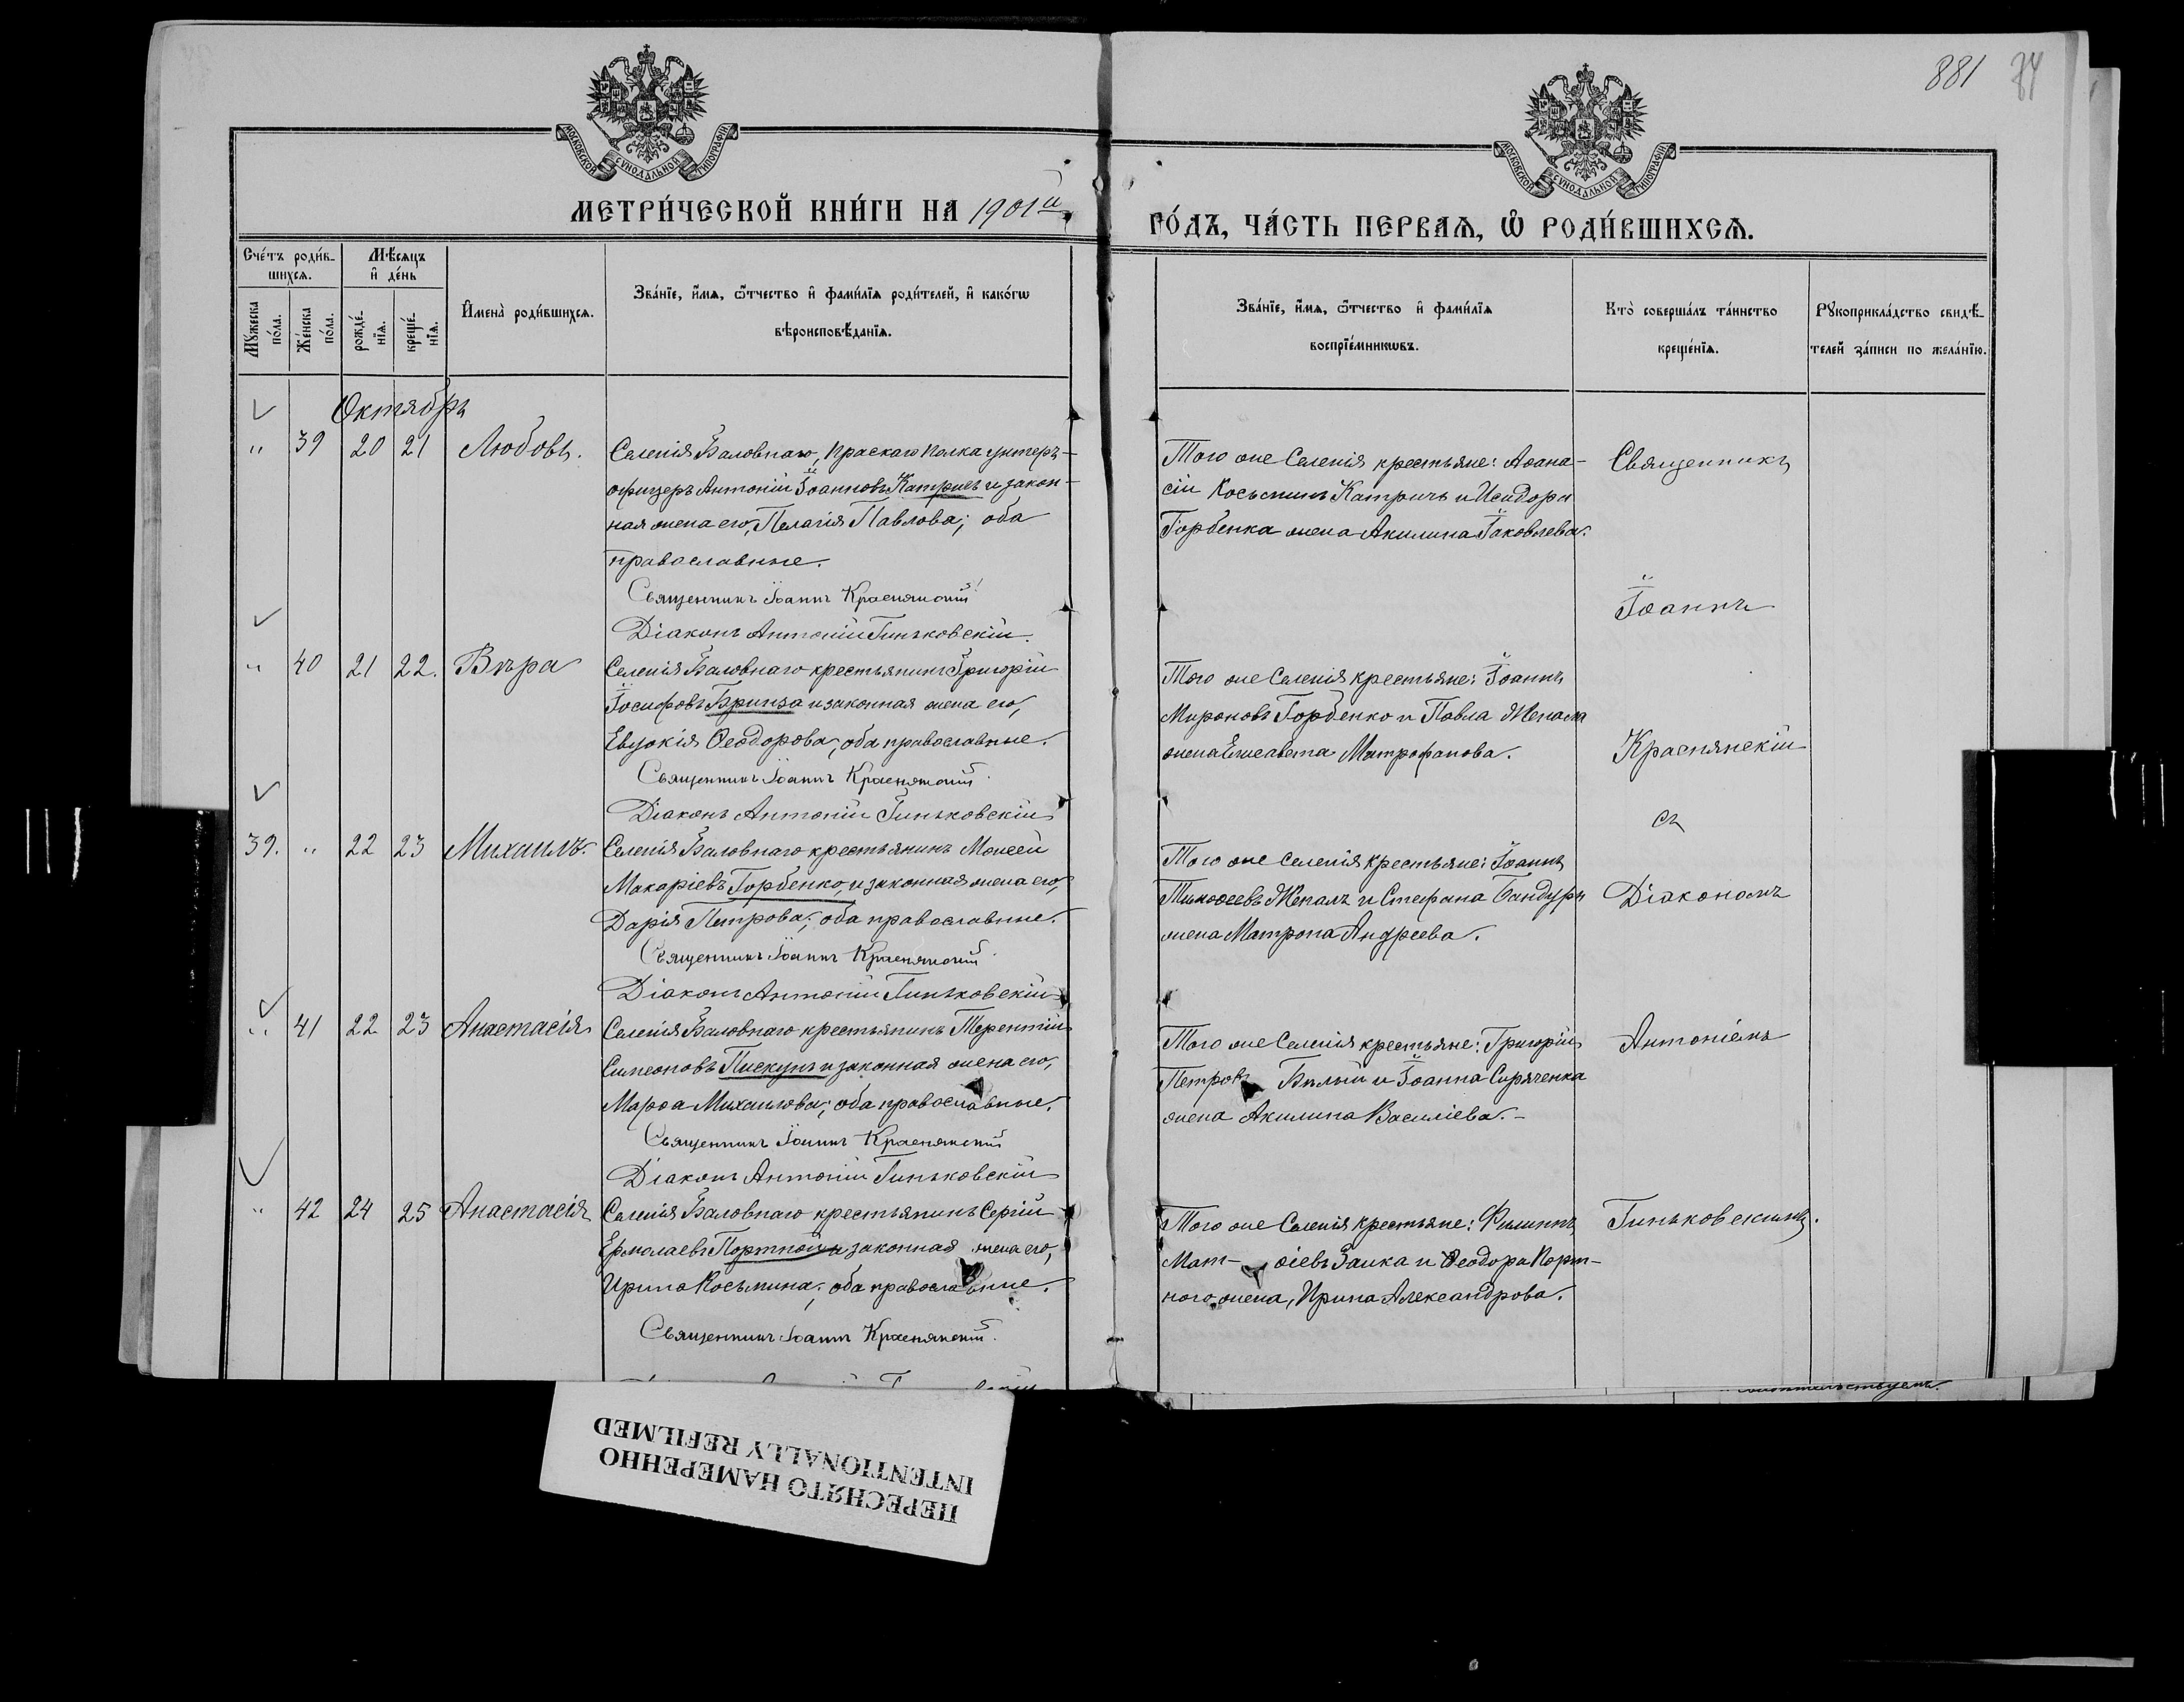 881 84
МОСКОВСКОЙ СУНОДАЛЬНОЙ ТИПОГРАФІИ
МОСКОВСКОЙ СУНОДАЛЬНОЙ ТИПОГРАФІИ
МЕТРИ́ЧЕСКОЙ КНИ́ГИ НА 1901й
ГО́ДЪ, ЧА́СТЬ ПЕРВАѦ, Ѡ҆ РОДИ́ВШИХСѦ.
Сче́тъ роди́в-
шихсѧ.
Мꙋжеска
по́ла.
Же́нска
по́ла.
Мѣ́сѧцъ
и҆ де́нь
рожде́-
нїѧ.
креще́-
нїѧ.
И҆мена̀ роди́вшихсѧ.
Зва́нїе, и҆́мѧ, ѻ҆́тчество и҆ фами́лїѧ роди́телей, и҆ како́гѡ
вѣроисповѣ́данїѧ.
Зва́нїе, и҆́мѧ, ѻ҆́тчество и҆ фами́лїѧ
воспрїе́мникѡвъ.
Кто̀ соверша́лъ та́инство
креще́нїѧ.
Рꙋкоприкла́дство свидѣ́-
телей за́писи по жела́нїю.
Октябрь
" 39 20 21 Любовь.
Селенія Баловнаго, полка унтеръ-
офицеръ Антоній Іоанновъ Катричъ и закон-
ная жена его, Пелагія Павлова; оба
православные.
Священникъ Іоаннъ Краснянскій
Діаконъ Антоній Гиньковскій.
Того же Селенія крестьяне: Аѳана-
сій Косьминъ Катричъ и Исидора
Горбенка жена Акилина Іаковлева.
Священникъ
Іоаннъ
" 40 21 22. Вѣра
Селенія Баловнаго крестьянинъ Григорій
Іосифовъ Бринза и законная жена его,
Евдокія Ѳеодорова; оба православные.
Священникъ Іоаннъ Краснянскій
Діаконъ Антоній Гиньковскій
Того же Селенія крестьяне: Іоаннъ
Мироновъ Горбенко и Павла
жена Елисавета Митрофанова.
Краснянскій
съ
39. " 22 23 Михаилъ.
Селенія Баловнаго крестьянинъ Моисей
Макаріевъ Горбенко, и законная жена его,
Дарія Петрова; оба православные.
Священникъ Іоаннъ Краснянскій
Діаконъ Антоній Гиньковскій
Того же Селенія крестьяне: Іоаннъ
Тимоѳеевъ и Стефана Бандуры
жена Матрона Андреева.
Діакономъ
" 41 22 23 Анастасія
Селенія Баловнаго крестьянинъ Терентій
Симеоновъ Пискунъ и законная жена его,
Марѳа Михаилова; оба православные.
Священникъ Іоаннъ Краснянскій
Діаконъ Антоній Гиньковскій
Того же Селенія крестьяне: Григорій
Петровъ Бѣлый и Іоанна Сиряченка
жена Акилина Василіева.-
Антоніемъ
" 42 24 25 Анастасія
Селенія Баловнаго крестьянинъ Сергій
Ермолаевъ Портной и законная жена его,
Ирина Косьмина; оба православные.
Священникъ Іоаннъ Краснянскій.
Того же Селенія крестьяне: Филиппъ
Мат- ѳіевъ Заика и Ѳеодора Порт-
ного жена, Ирина Александрова.
Гиньковскимъ.
ПЕРЕСНЯТО НАМЕРЕННО
INTENTIONALLY REFILMED